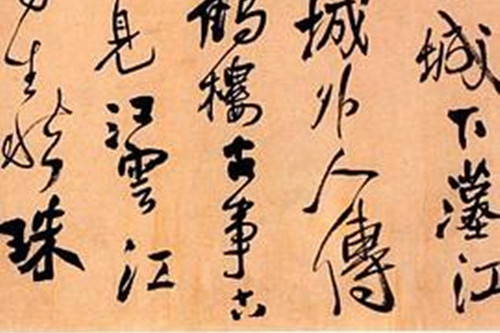 城下江
城外人傳
鶴樓古事
見江雲江
生珠